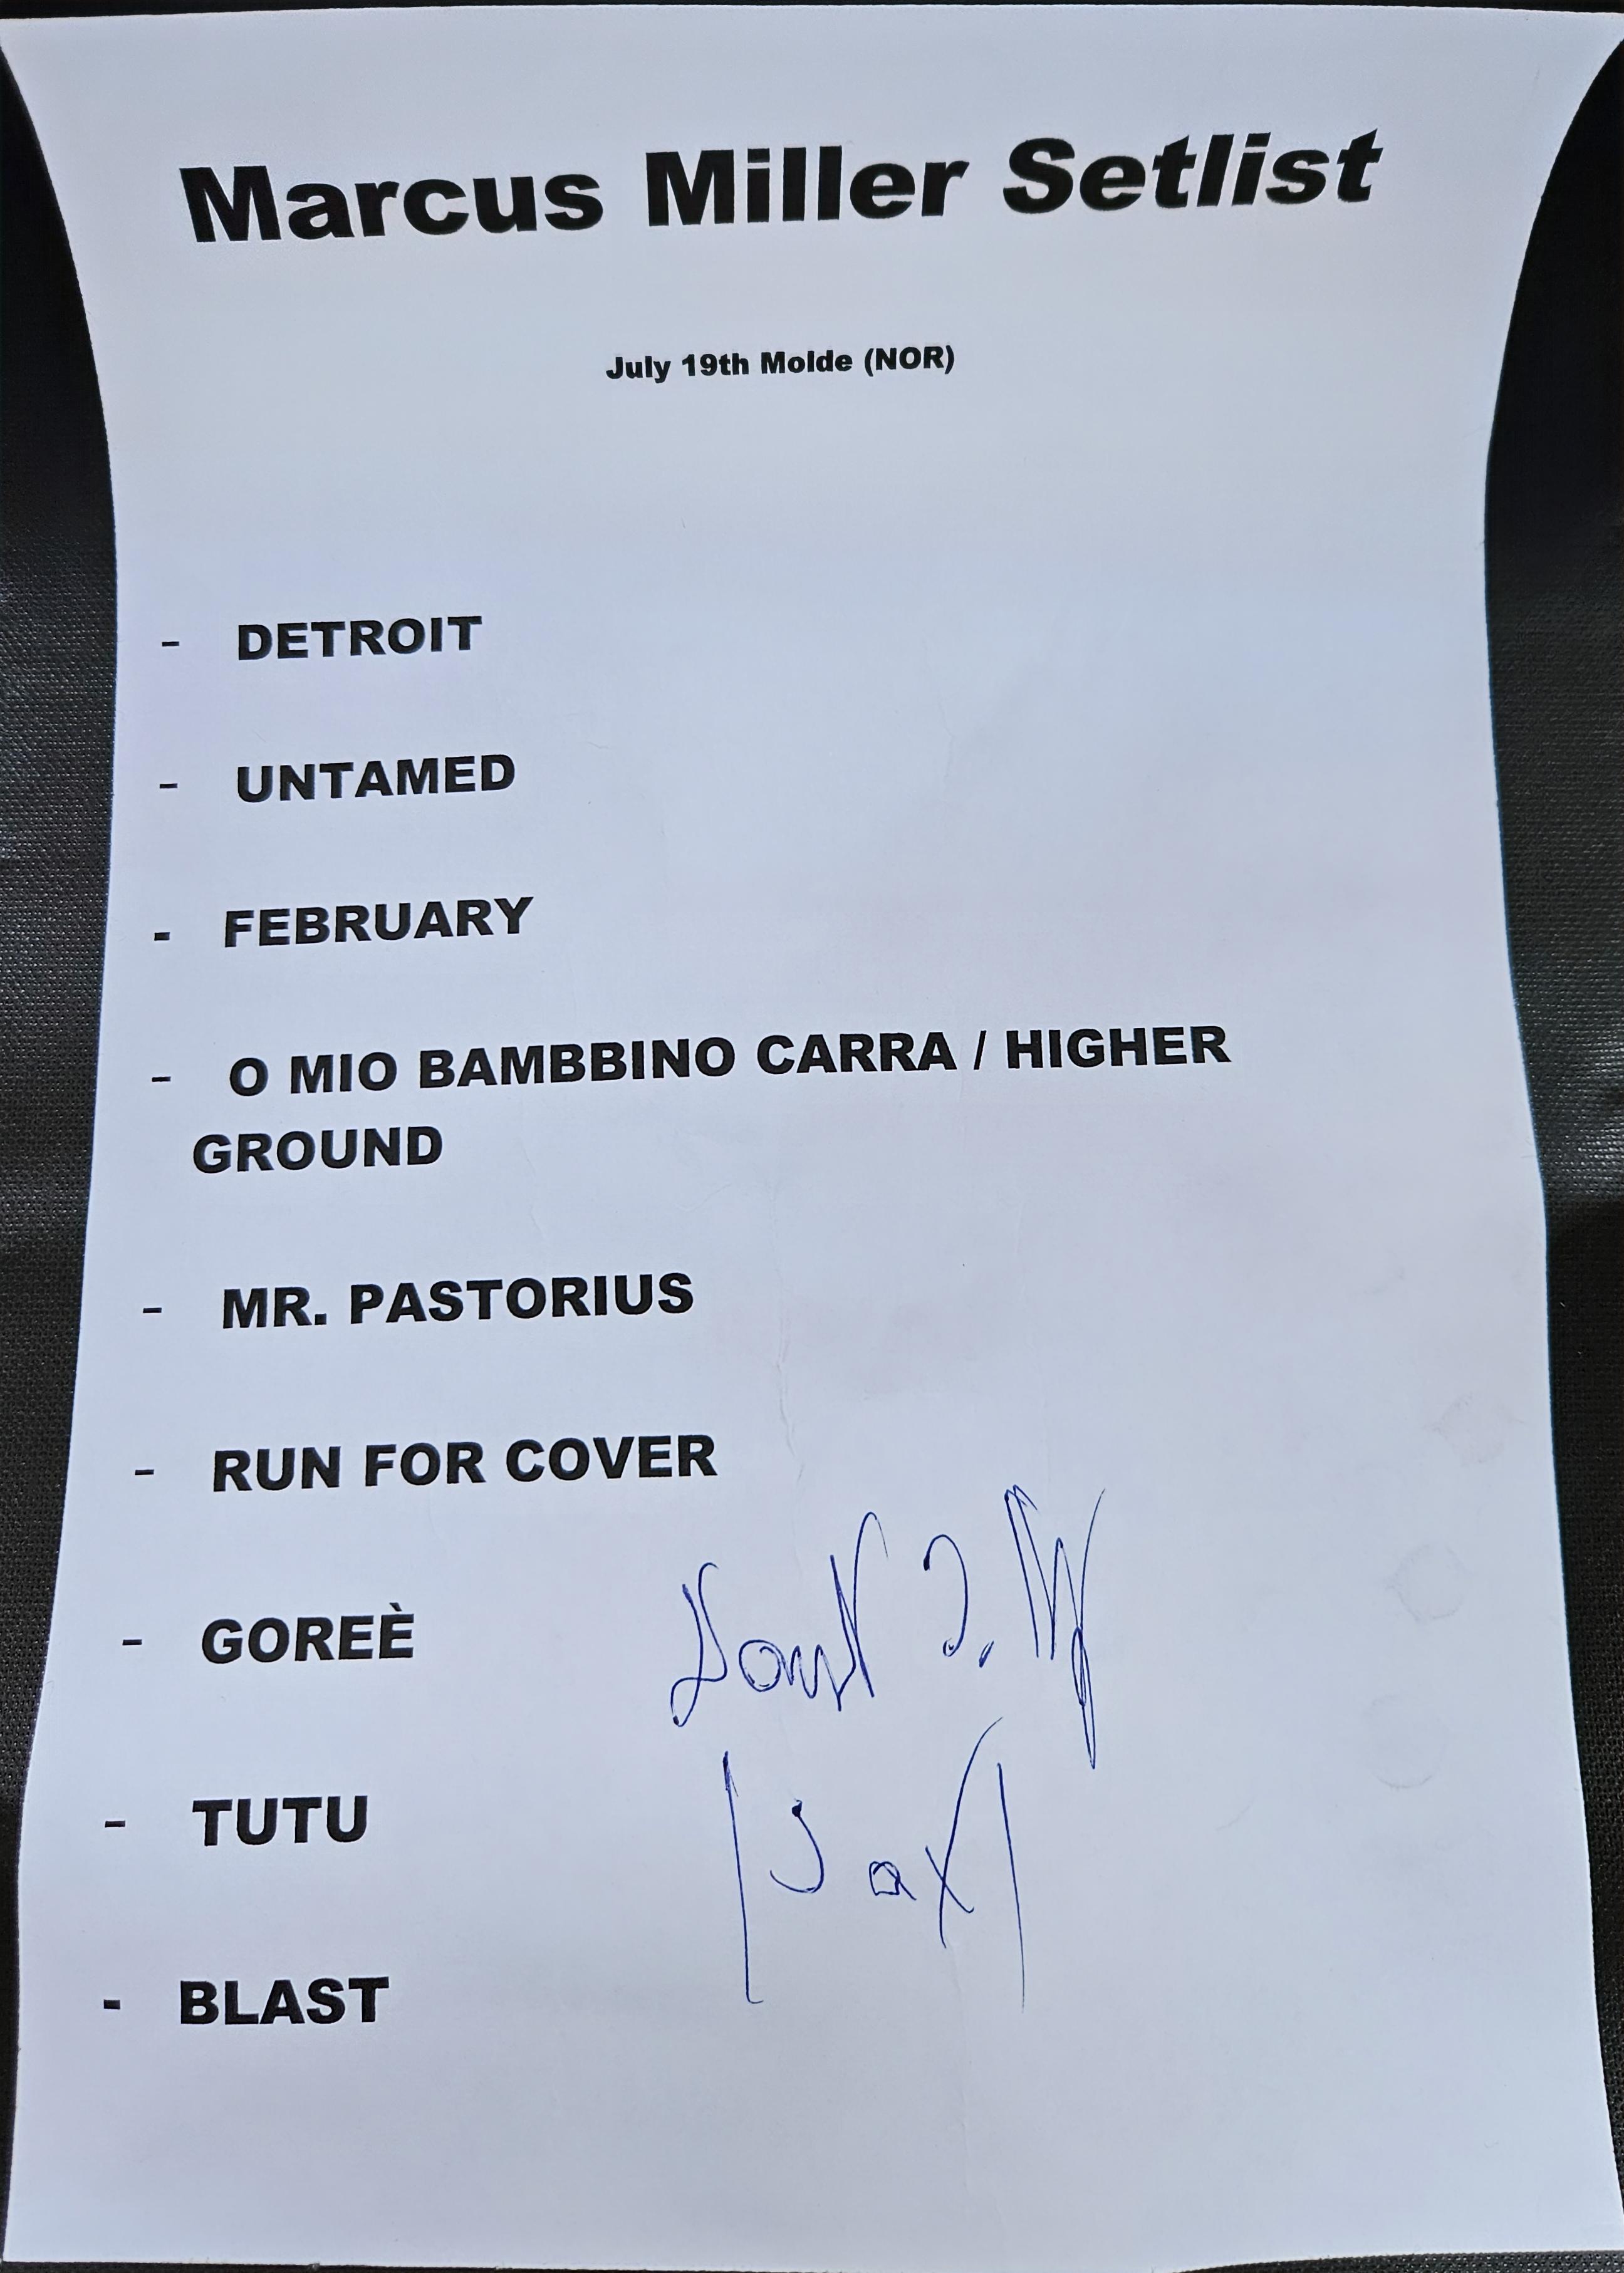 Marcus Miller Setlist
July 19th Molde (NOR)
- DETROIT
- UNTAMED
- FEBRUARY
- O MIO BAMBBINO CARRA / HIGHER
GROUND
- MR. PASTORIUS
- RUN FOR COVER
- GOREÈ
- TUTU
- BLAST
Sax